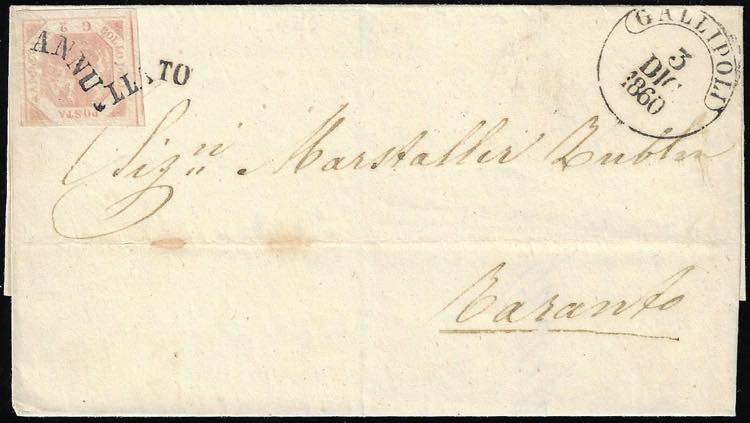 ANNULLATO
G 2
BOLLO
POSTA
GALLIPOLI
3
DIC
1860
Sig.ri Marstaller Zublin
Taranto